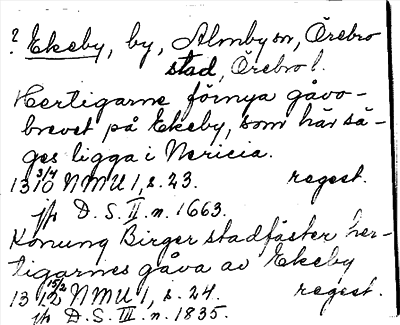 ? Ekeby, by, Almby sn, Örebro
stad, Örebro l.
Hertigarne förnya gåvo-
brevet på Ekeby, som här sä-
ges ligga i Nericia.
13 3/4 10 NMU 1, s. 23. regest.
jfr D. S. II. n. 1663.
Konung Birger stadfäster her-
tigarnes gåva av Ekeby
13 15/2 12 NMU 1, s. 24. regest.
jfr D. S. III. n. 1835.